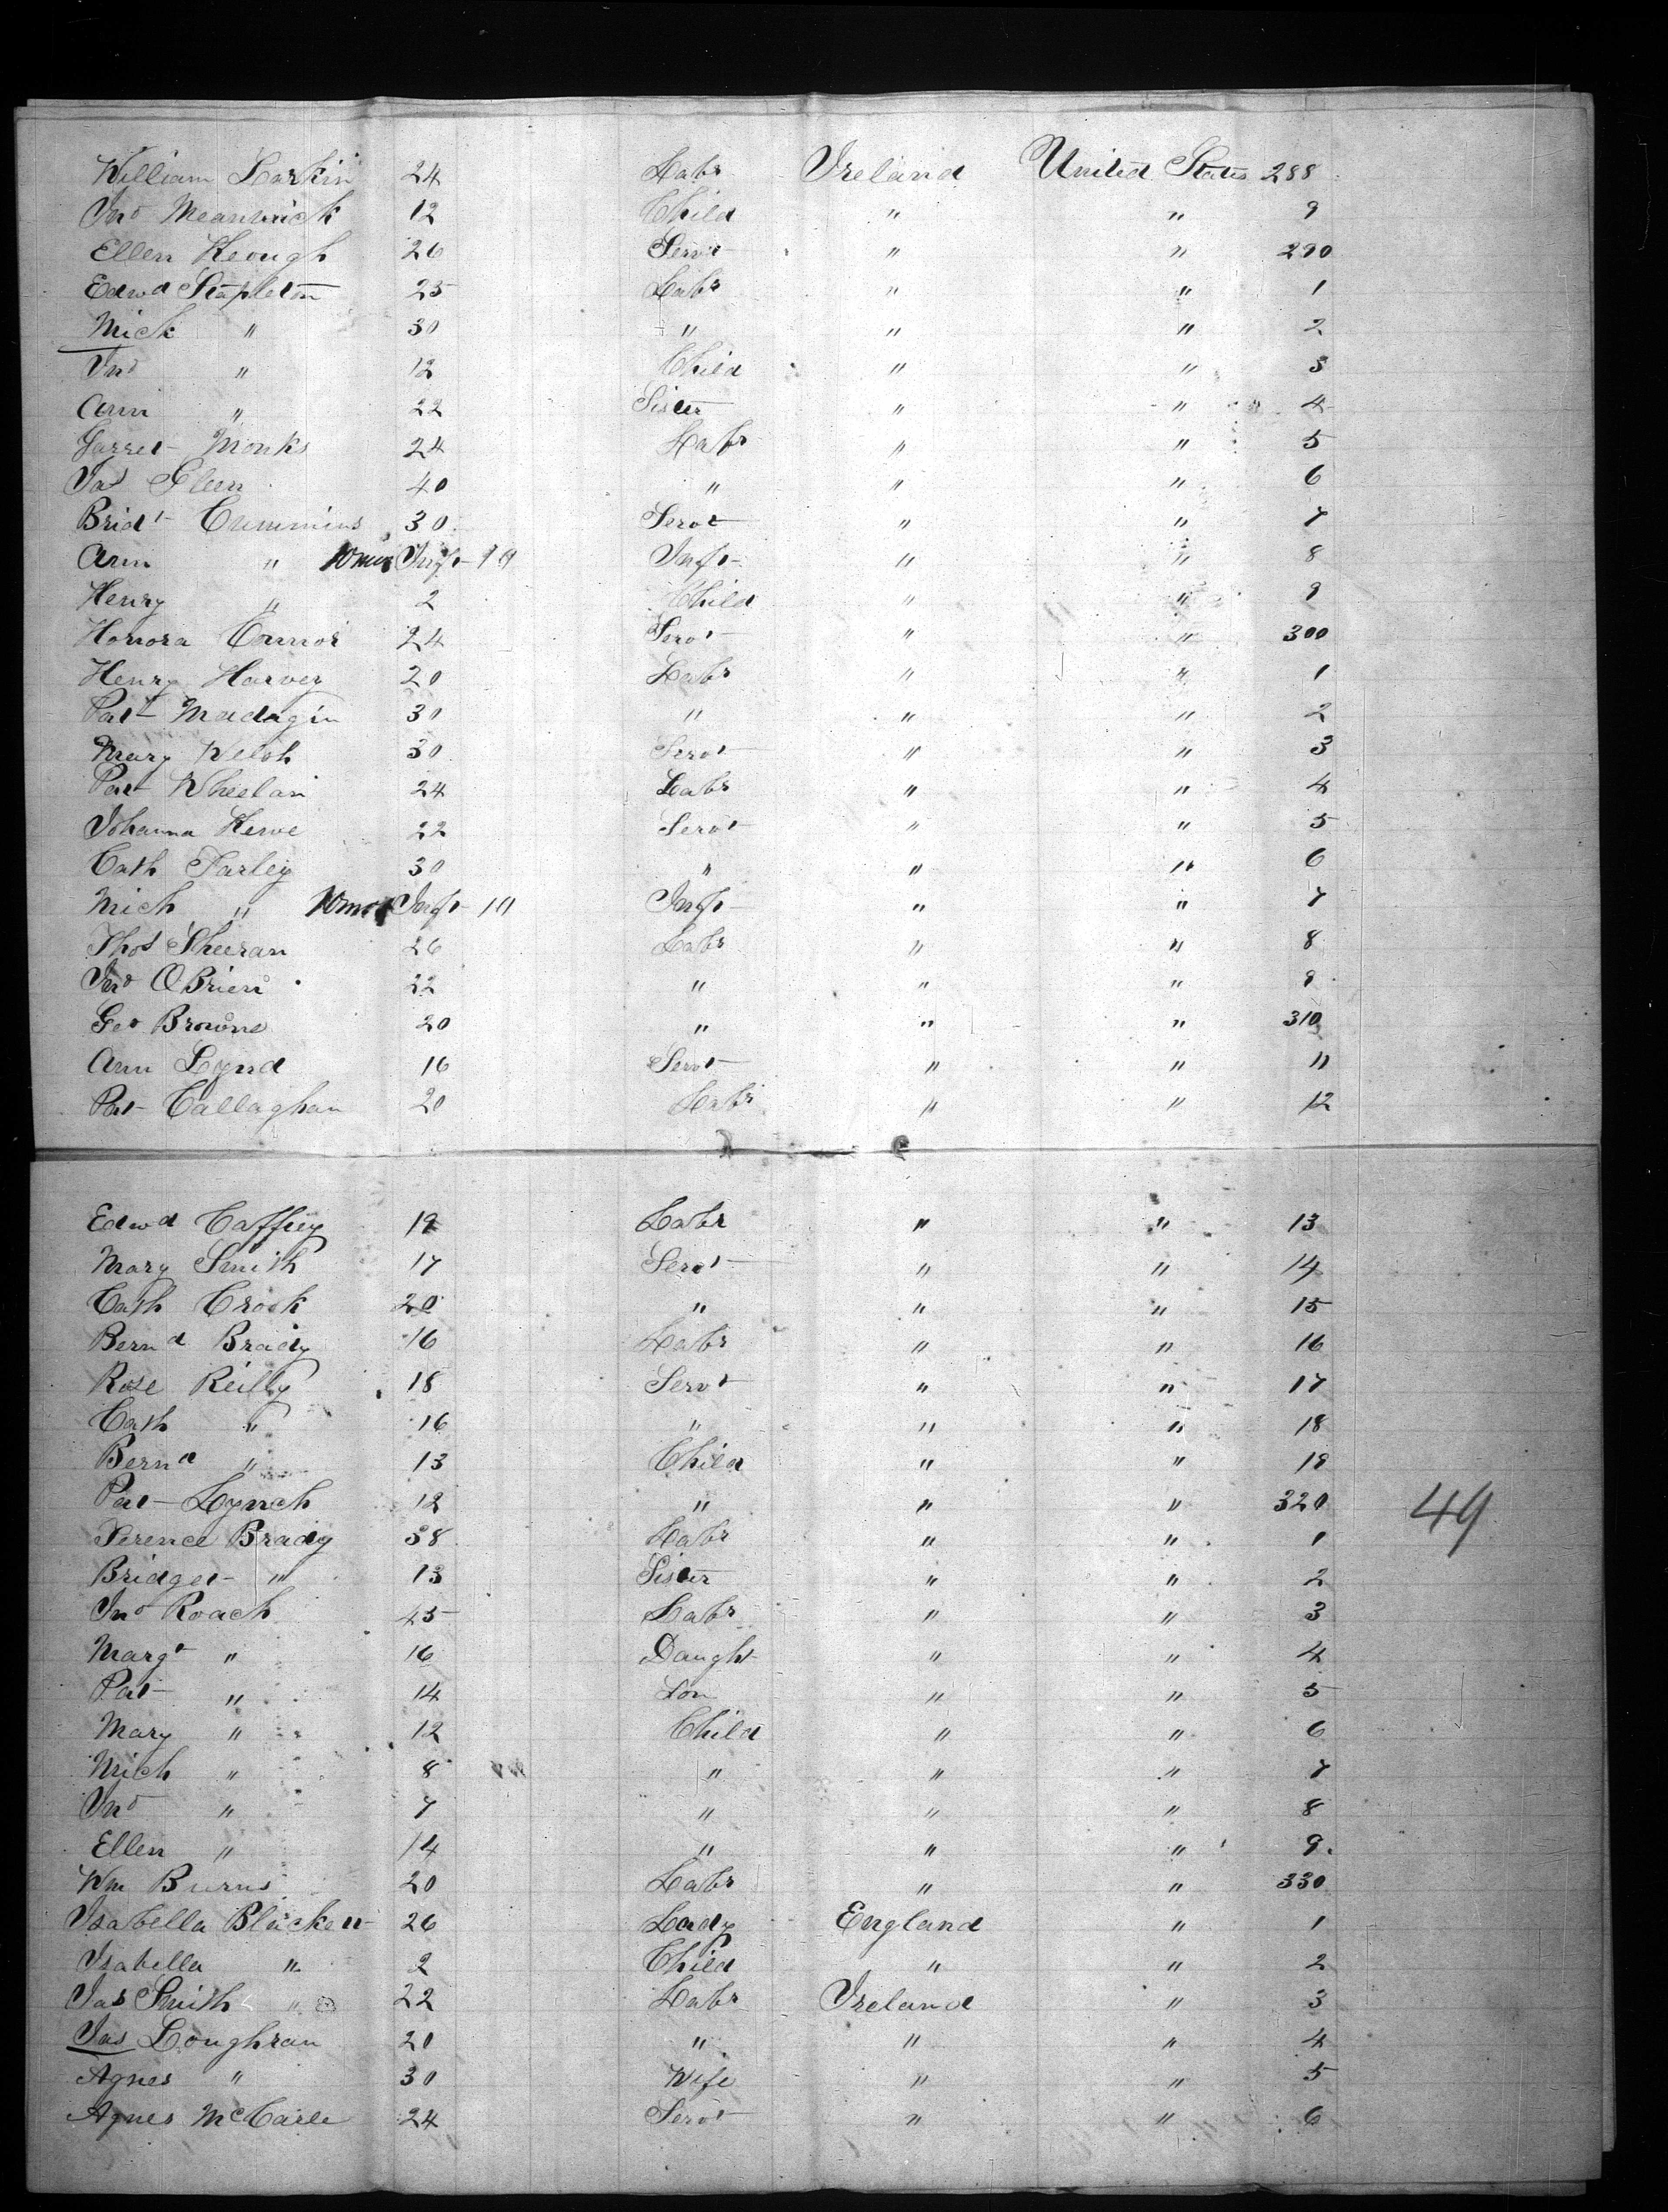 William Larkin 24 Labr Ireland United States 288
Jno 12 Child " " 9
Ellen Keough 26 Servt " " 290
Edwd Stapleton 25 Labr " " 1
Mick " 30 " " " 2
Jno " 12 Child " " 3
Ann " 22 Sister " " 4
Garret Monks 24 Labr " " 5
Jas Gleen 40 " " " 6
Bridt Cummins 30 Servt " " 7
Ann " 10 mos Inft 10 Inft " " 8
Henry " 2 Child " " 9
Honora Connor 24 Servt " " 300
Henry Harvey 20 Labr " " 1
Pat Madagin 30 " " " 2
Mary Welsh 30 Servt " " 3
Pat Wheelan 24 Labr " " 4
Johanna 22 Servt " " 5
Cath Farley 30 " " " 6
Mich " 10 mos Inft 10 Inft " " 7
Thos Sheeran 26 Labr " " 8
Jno O Brien 22 " " " 9
Geo Browne 20 " " " 310
Ann Lynd 16 Servt " " 11
Pat Callaghan 20 Labr " " 12
Edwd Caffrey 19 Labr " " 13
Mary Smith 17 Servt " " 14
Cath Crook 20 " " " 15
Bernd Brady 16 Labr " " 16
Rose Reilly 18 Servt " " 17
Cath " 16 " " " 18
Bernd " 13 Child " " 19
Pat Lynch 12 " " " 320
49
Terence Brady 38 Labr " " 1
Bridget " 13 Sister " " 2
Jno Roach 45 Labr " " 3
Margt " 16 Daught " " 4
Pat " 14 Son " " 5
Mary " 12 Child " " 6
Mich " 8 " " " 7
Jno " 7 " " " 8
Ellen " 14 " " " 9
Wm Burns 20 Labr " " 330
Isabella 26 Lady England " 1
Isabella " 2 Child " " 2
Jas Smith 22 Labr Ireland " 3
Jas Loughran 20 " " " 4
Agnes " 30 Wife " " 5
Agnes 24 Servt " " 6